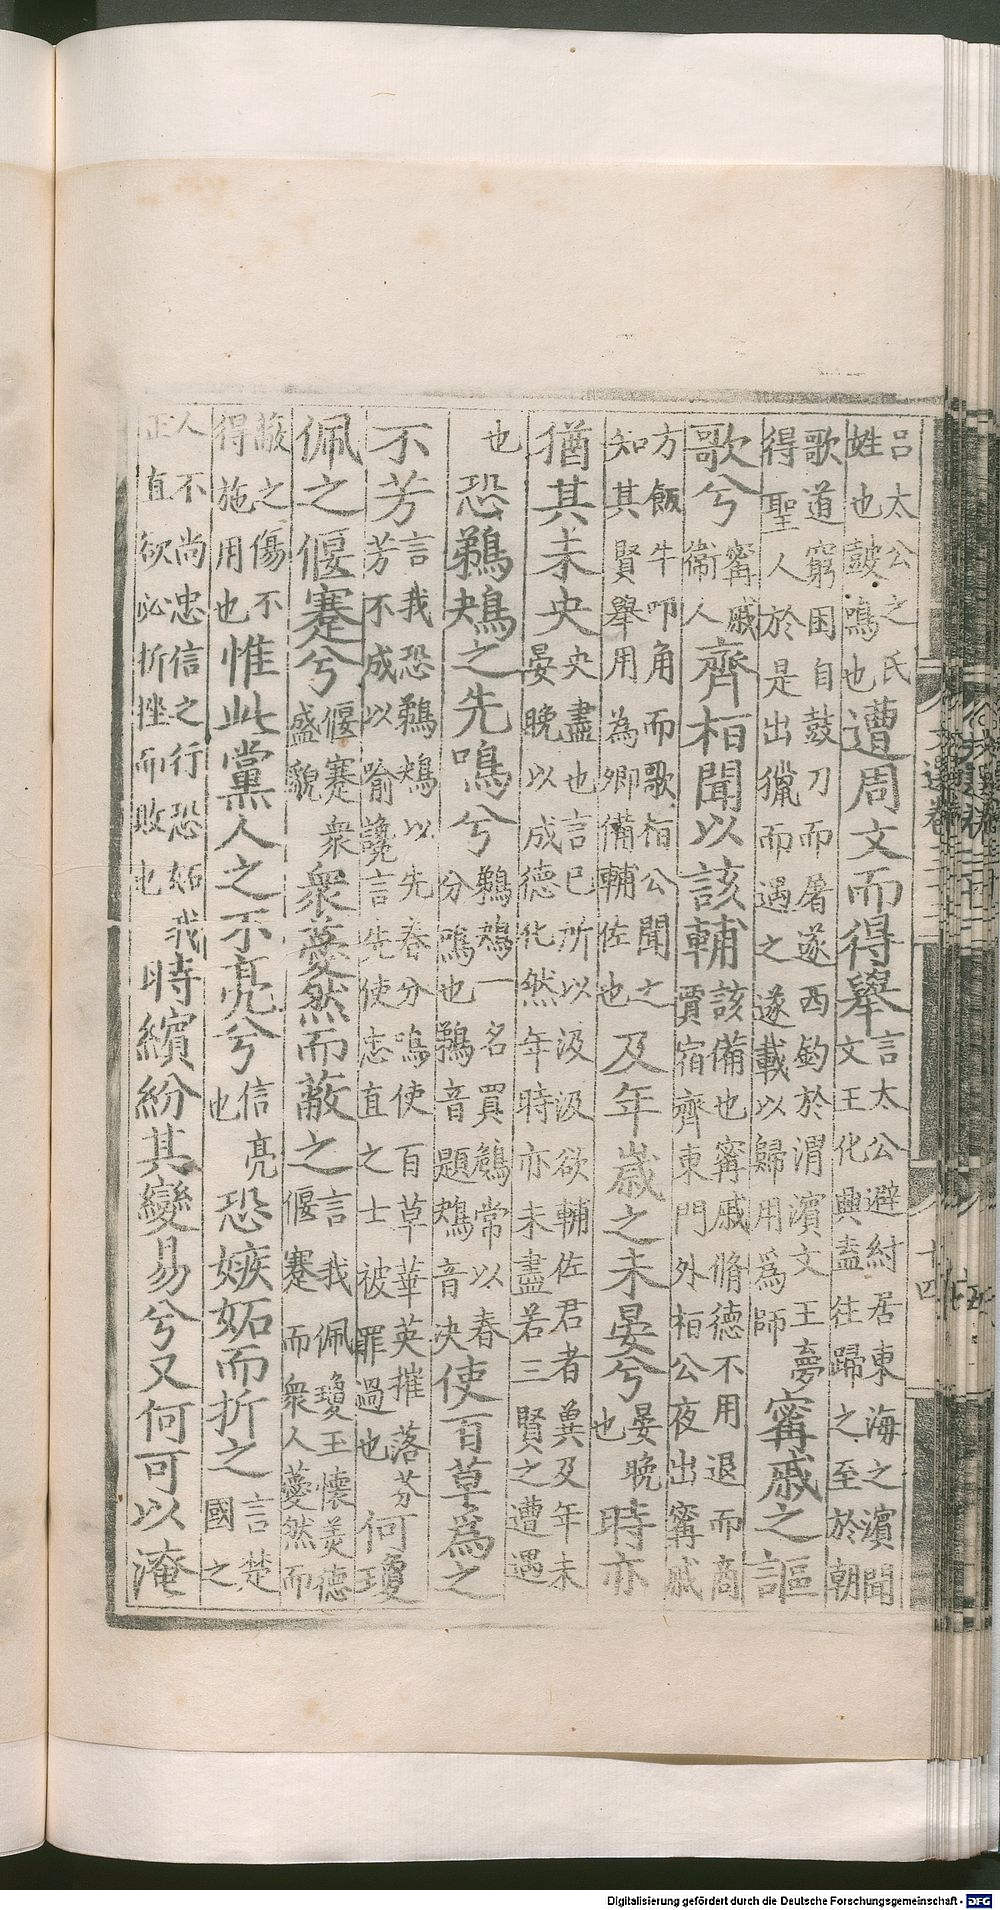 呂太公之氏姓也鼓鳴也遭周文而得舉言太公避紂居東海之濱聞文王化興盍往歸之至於朝
歌道窮困自鼓刀而屠遂西釣於渭濱文王夢得聖人於是出獵而遇之遂載以歸用爲師甯戚之謳
歌兮甯戚衞人齊栢聞以該輔該備也甯戚脩德不用退而商賈宿齊東門外栢公夜出甯戚
方飯牛叩角而歌栢公聞之知其賢舉用為卿備輔佐也及年歲之未晏兮晏晚也時亦
猶其未央央盡也言已所以汲汲欲輔佐君者冀及年未晏晚以成德化然年時亦未盡若三賢之遭遇
也恐鵜鴂之先鳴兮鵜鴂一名買常以春分鳴也鵜音題鴂音决使百草爲之
不芳言我恐鵜鴂以先春分鳴使百草華英摧落芬芳不成以喻讒言先使忠直之士被罪過也何瓊
佩之偃蹇兮偃蹇衆盛貌衆薆然而蔽之言我佩瓊玉懷美德偃蹇而衆人薆然而
蔽之傷不得施用也惟此黨人之不亮兮信亮也恐嫉妬而折之言楚國之
人不尚忠信之行恐妬我正直欲必折挫而敗也時繽紛其變易兮又何可以淹
文選卷三十二
十四
Digitalisierung gefördert durch die Deutsche Forschungsgemeinschaft - DFG